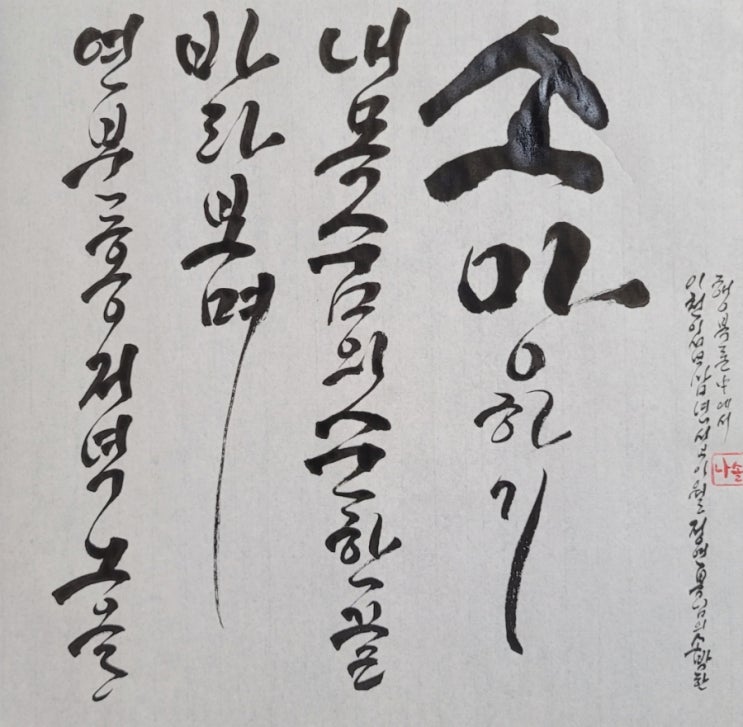 연분홍 저녁 노을
바라보며
내 목숨의 순한 끝
소망하기
이천이십삼년 정연복님의 소박한
행복론 中에서
나솔